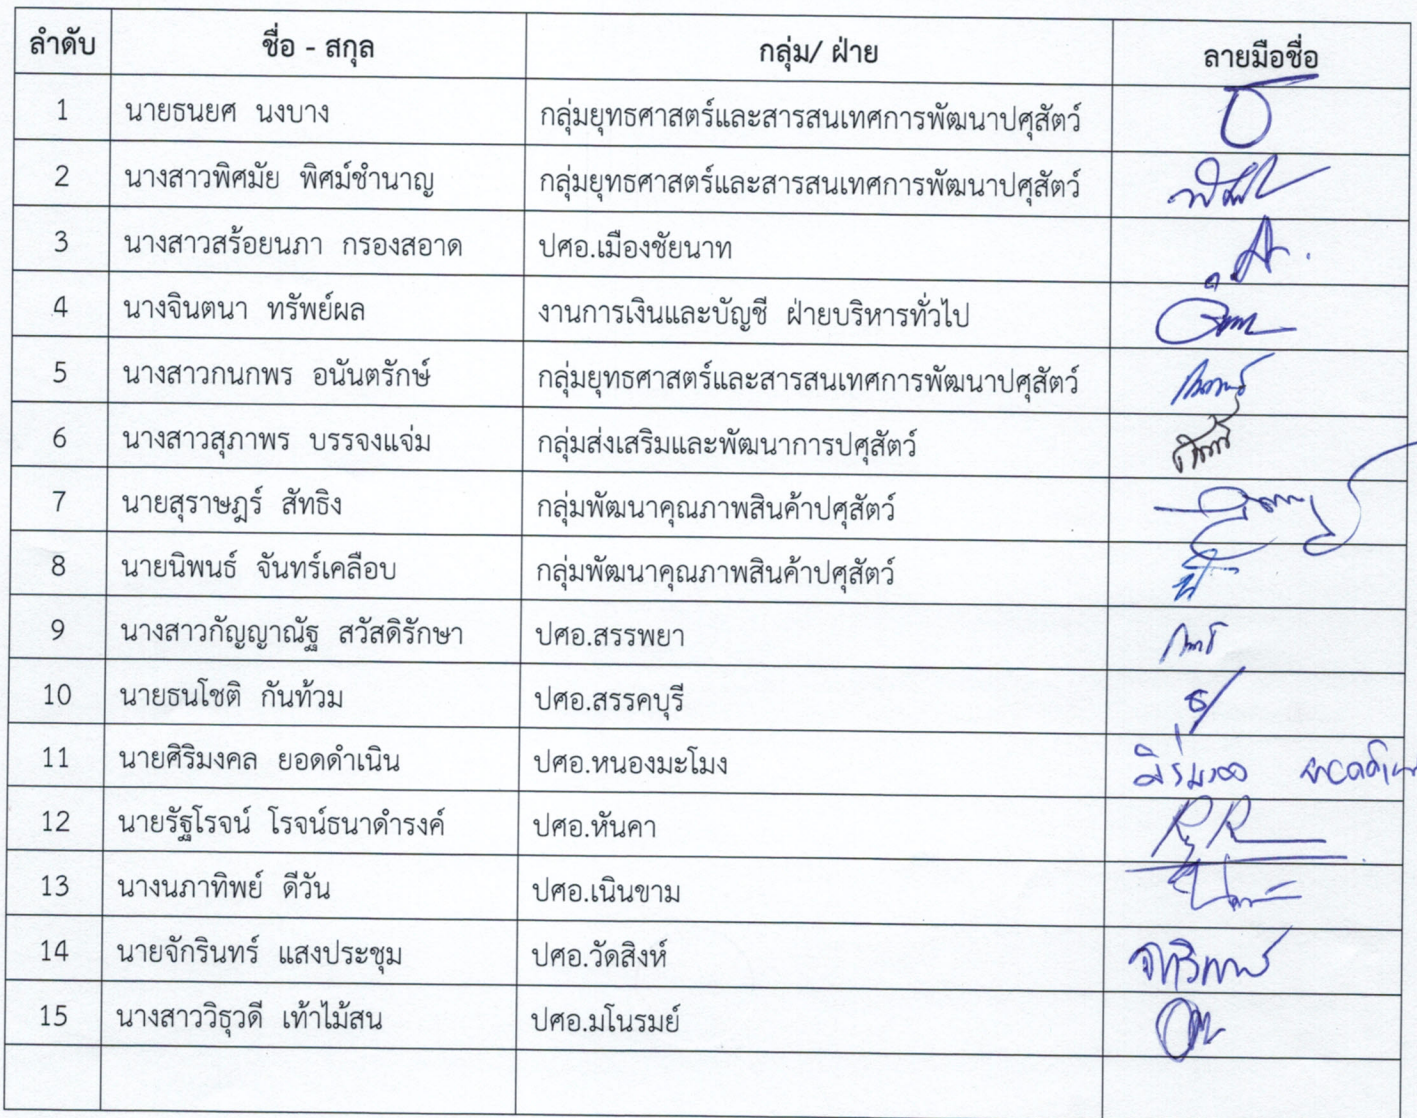 ลำดับ ชื่อ - สกุล กลุ่ม/ ฝ่าย ลายมือชื่อ
1 นายธนยศ นงบาง กลุ่มยุทธศาสตร์และสารสนเทศการพัฒนาปศุสัตว์
2 นางสาวพิศมัย พิศม์ชำนาญ กลุ่มยุทธศาสตร์และสารสนเทศการพัฒนาปศุสัตว์
3 นางสาวสร้อยนภา กรองสอาด ปศอ.เมืองชัยนาท
4 นางจินตนา ทรัพย์ผล งานการเงินและบัญชี ฝ่ายบริหารทั่วไป
5 นางสาวกนกพร อนันตรักษ์ กลุ่มยุทธศาสตร์และสารสนเทศการพัฒนาปศุสัตว์
6 นางสาวสุภาพร บรรจงแจ่ม กลุ่มส่งเสริมและพัฒนาการปศุสัตว์
7 นายสุราษฎร์ สัทธิง กลุ่มพัฒนาคุณภาพสินค้าปศุสัตว์
8 นายนิพนธ์ จันทร์เคลือบ กลุ่มพัฒนาคุณภาพสินค้าปศุสัตว์
9 นางสาวกัญญาณัฐ สวัสดิรักษา ปศอ.สรรพยา
10 นายธนโชติ กันท้วม ปศอ.สรรคบุรี
11 นายศิริมงคล ยอดดำเนิน ปศอ.หนองมะโมง
12 นายรัฐโรจน์ โรจน์ธนาดำรงค์ ปศอ.หันคา
13 นางนภาทิพย์ ดีวัน ปศอ.เนินขาม
14 นายจักรินทร์ แสงประชุม ปศอ.วัดสิงห์
15 นางสาววิธุวดี เท้าไม้สน ปศอ.มโนรมย์